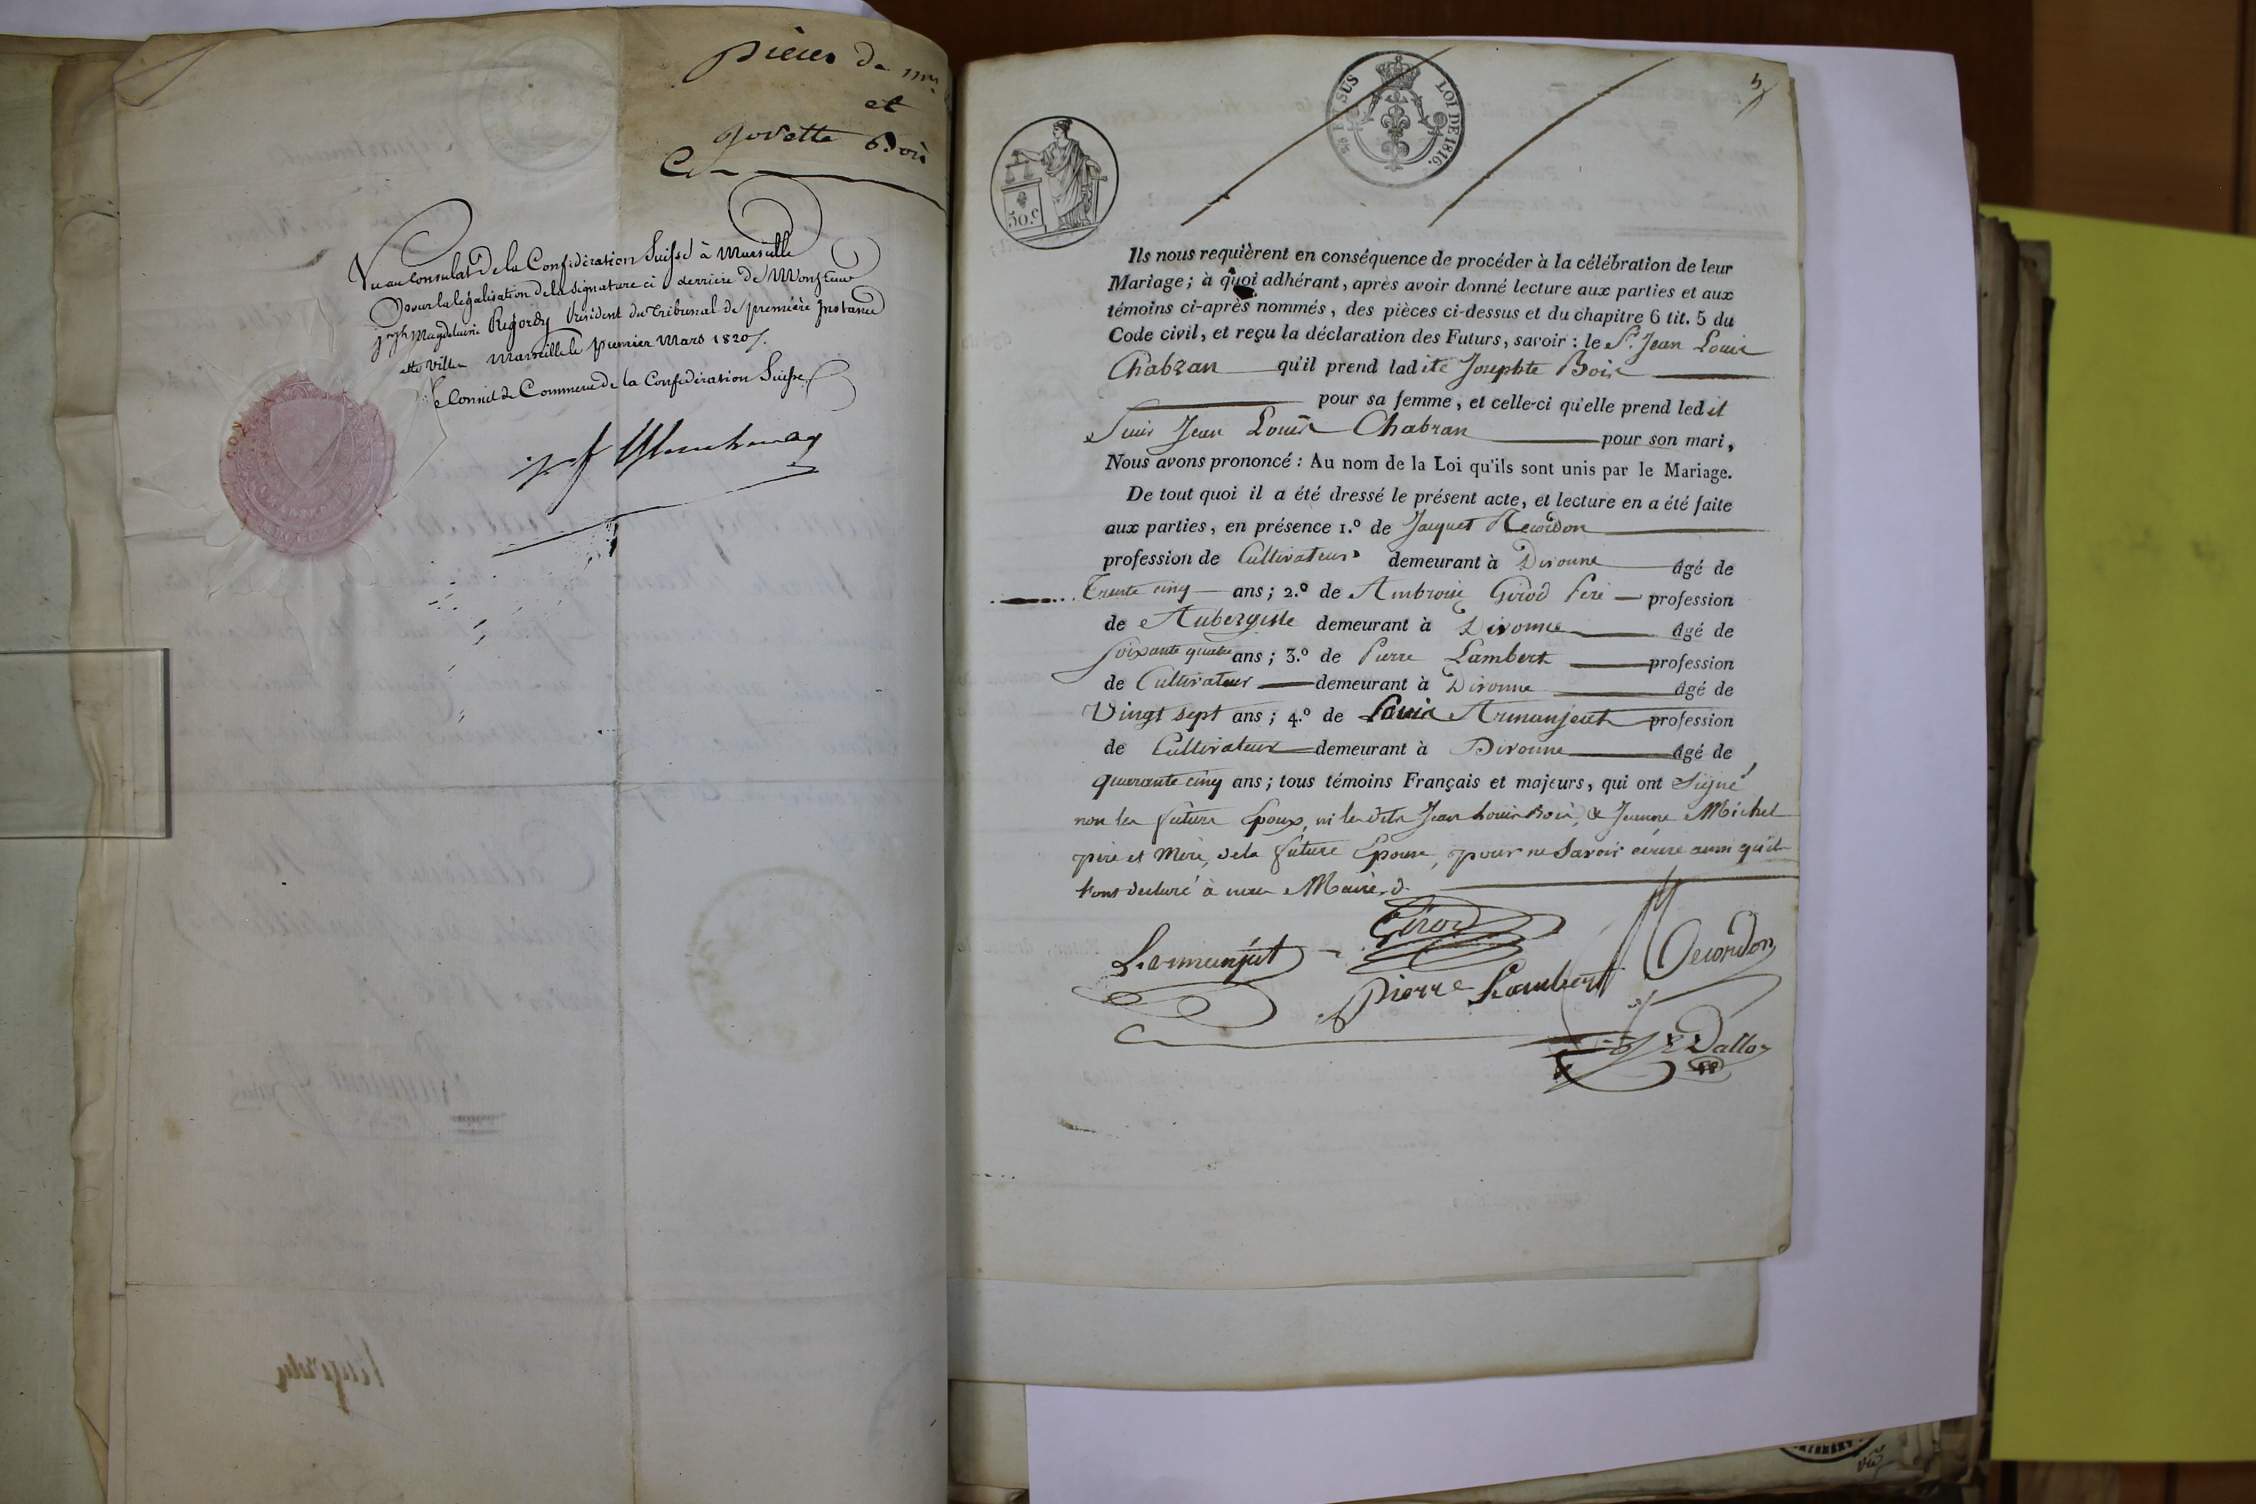 pièces de mr
et
Josette Bois
Vu au Consulat de la Confédération Suisse à Marseille
pour la légalisation de la signature ci derrière de Monsieur
Jph Magdelaine Rigordy Président du Tribunal de première Instance
Ville Marseille le premier Mars 1820
le Consul de Commerce de la Confédération Suisse
5
SUS
LOI DE 1816.
50 c
Ils nous requièrent en conséquence de procéder à la célébration de leur
Mariage ; à quoi adhérant, après avoir donné lecture aux parties et aux
témoins ci-après nommés, des pièces ci-dessus et du chapitre 6 tit. 5 du
Code civil, et reçu la déclaration des Futurs, savoir : le Sr. Jean Louis
Chabran qu'il prend ladite Josephte Bois
pour sa femme, et celle-ci qu'elle prend ledit
Sieur Jean Louis Chabran pour son mari,
Nous avons prononcé : Au nom de la Loi qu'ils sont unis par le Mariage.
De tout quoi il a été dressé le présent acte, et lecture en a été faite
aux parties, en présence 1.º de Jaques Recordon
profession de Cultivateur demeurant à Divonne âgé de
Trente cinq ans ; 2.º de Ambroise Girod Père profession
de Aubergiste demeurant à Divonne âgé de
soixante quatre ans ; 3.º de Pierre Lambert profession
de Cultivateur demeurant à Divonne âgé de
Vingt sept ans ; 4.º de Louis Armanjeat profession
de Cultivateur demeurant à Divonne âgé de
quarante cinq ans ; tous témoins Français et majeurs, qui ont signé
non les futurs Epoux, ni les dits Jean Louis Bois, & Jeanne Michel
père et Mère, de la future Epouse, pour ne savoir écrire ainsi qu'ils
l'ont declaré à nous Maire.
Girod
L. armanjat
Recordon
Pierre Lambert
Dalloz